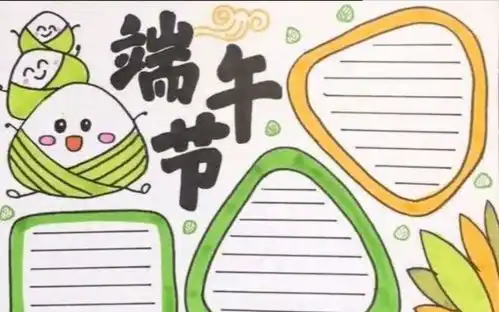 端午节